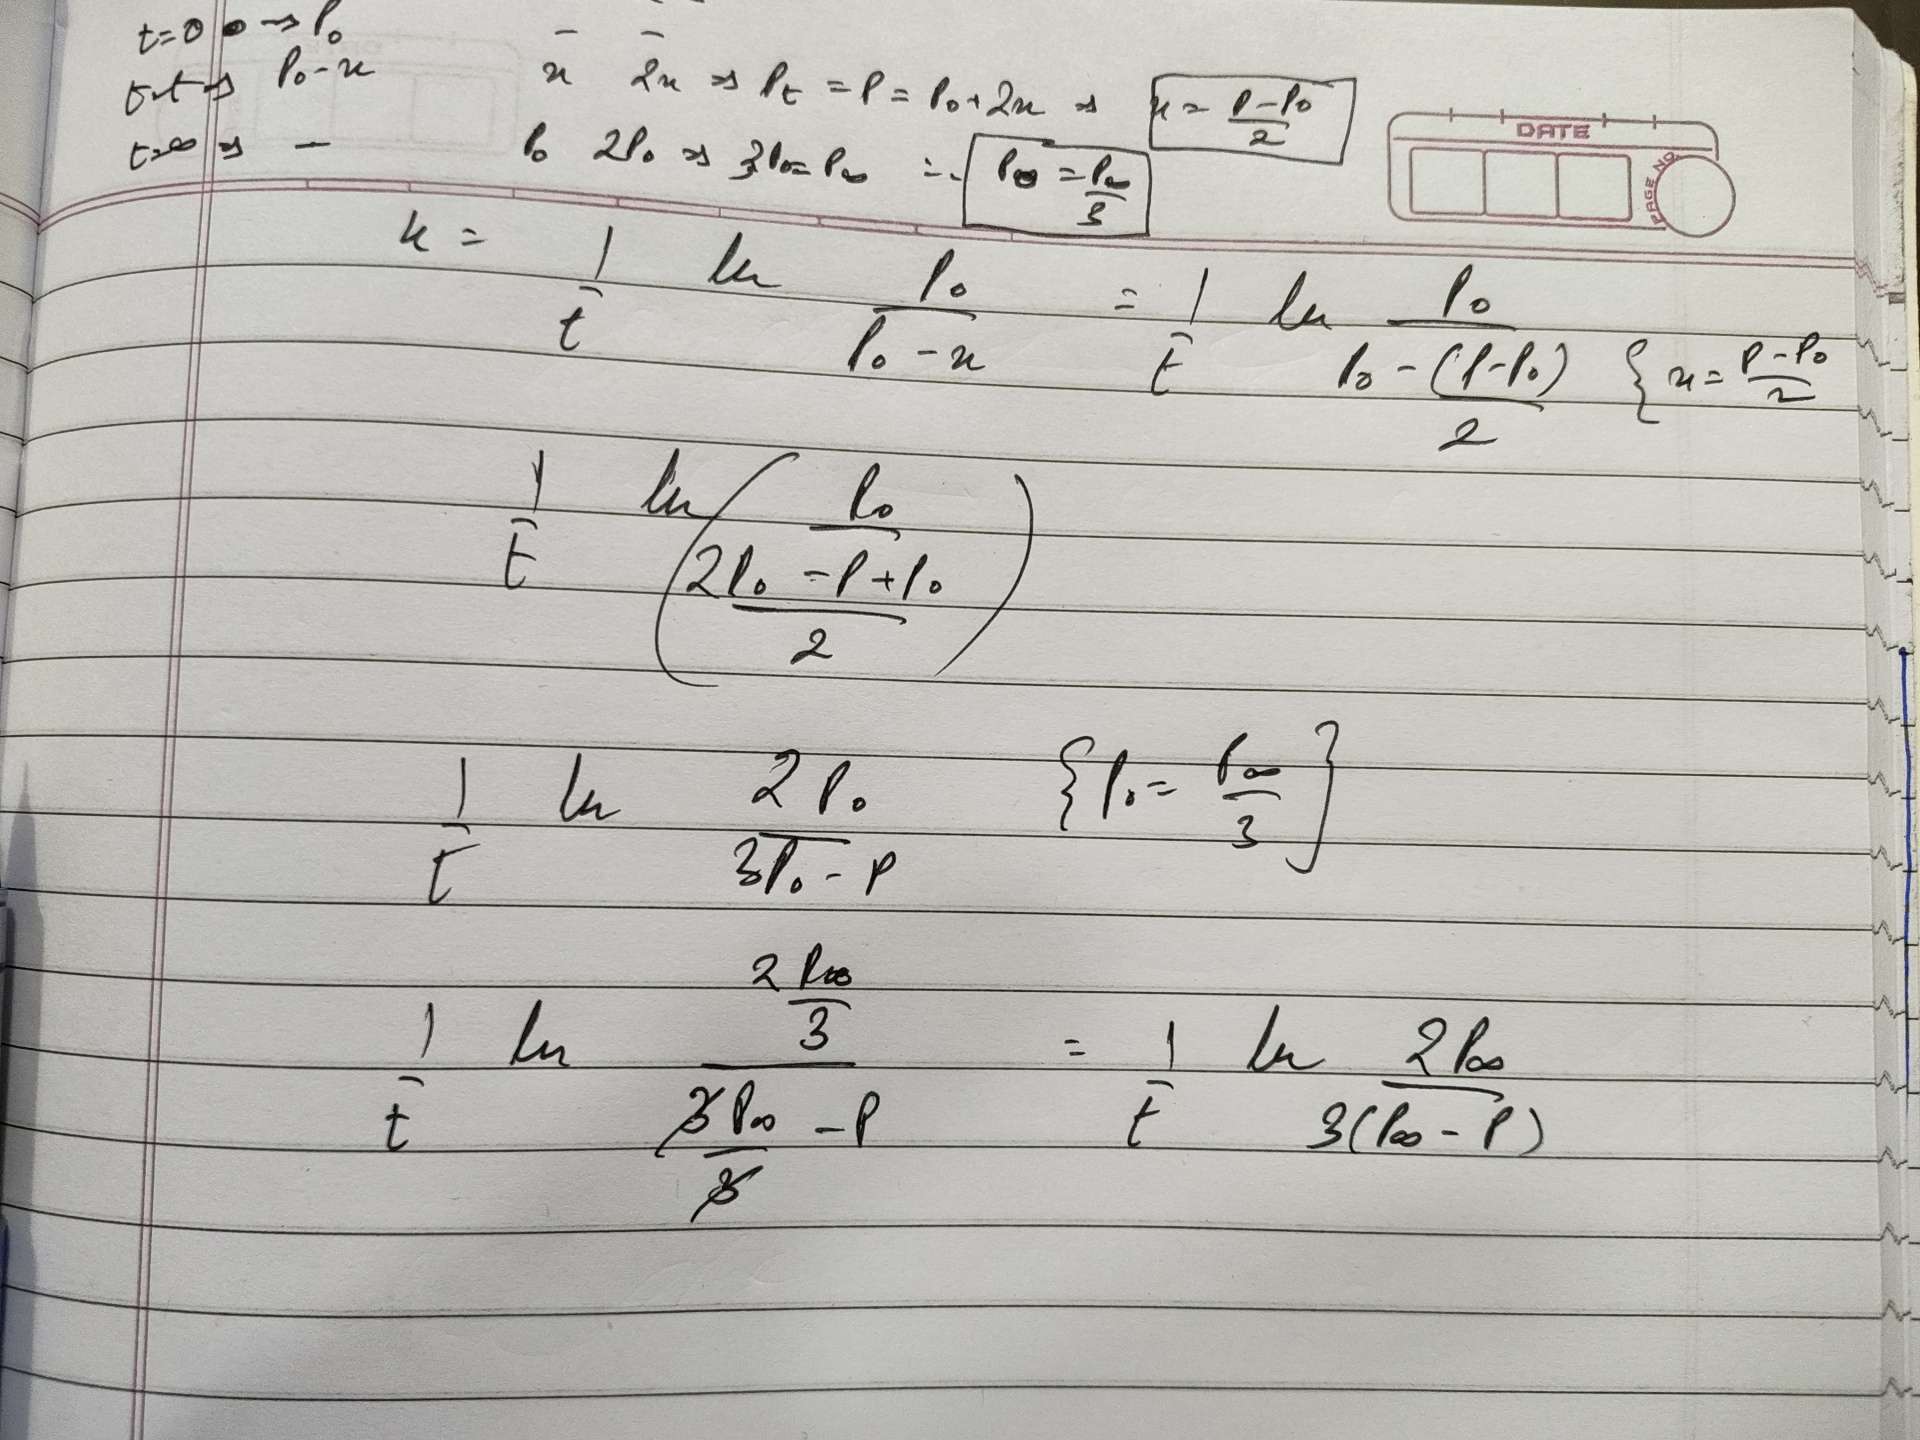 t=0 → P₀
t=t ⇒ P₀-x x 2x ⇒ Pt = P = P₀+2x ⇒ x = (P-P₀)/2
t=∞ ⇒ - P₀ 2P₀ ⇒ 3P₀=P∞ ∴ P₀ = P∞/3
DATE
PAGE NO.
k = 1/t ln P₀/(P₀-x) = 1/t ln P₀/(P₀-(P-P₀)/2) { x = (P-P₀)/2
1/t ln (P₀/((2P₀-P+P₀)/2))
1/t ln 2P₀/(3P₀-P) {P₀ = P∞/3}
1/t ln (2P∞/3)/(3P∞/3 - P) = 1/t ln 2P∞/(3(P∞-P))